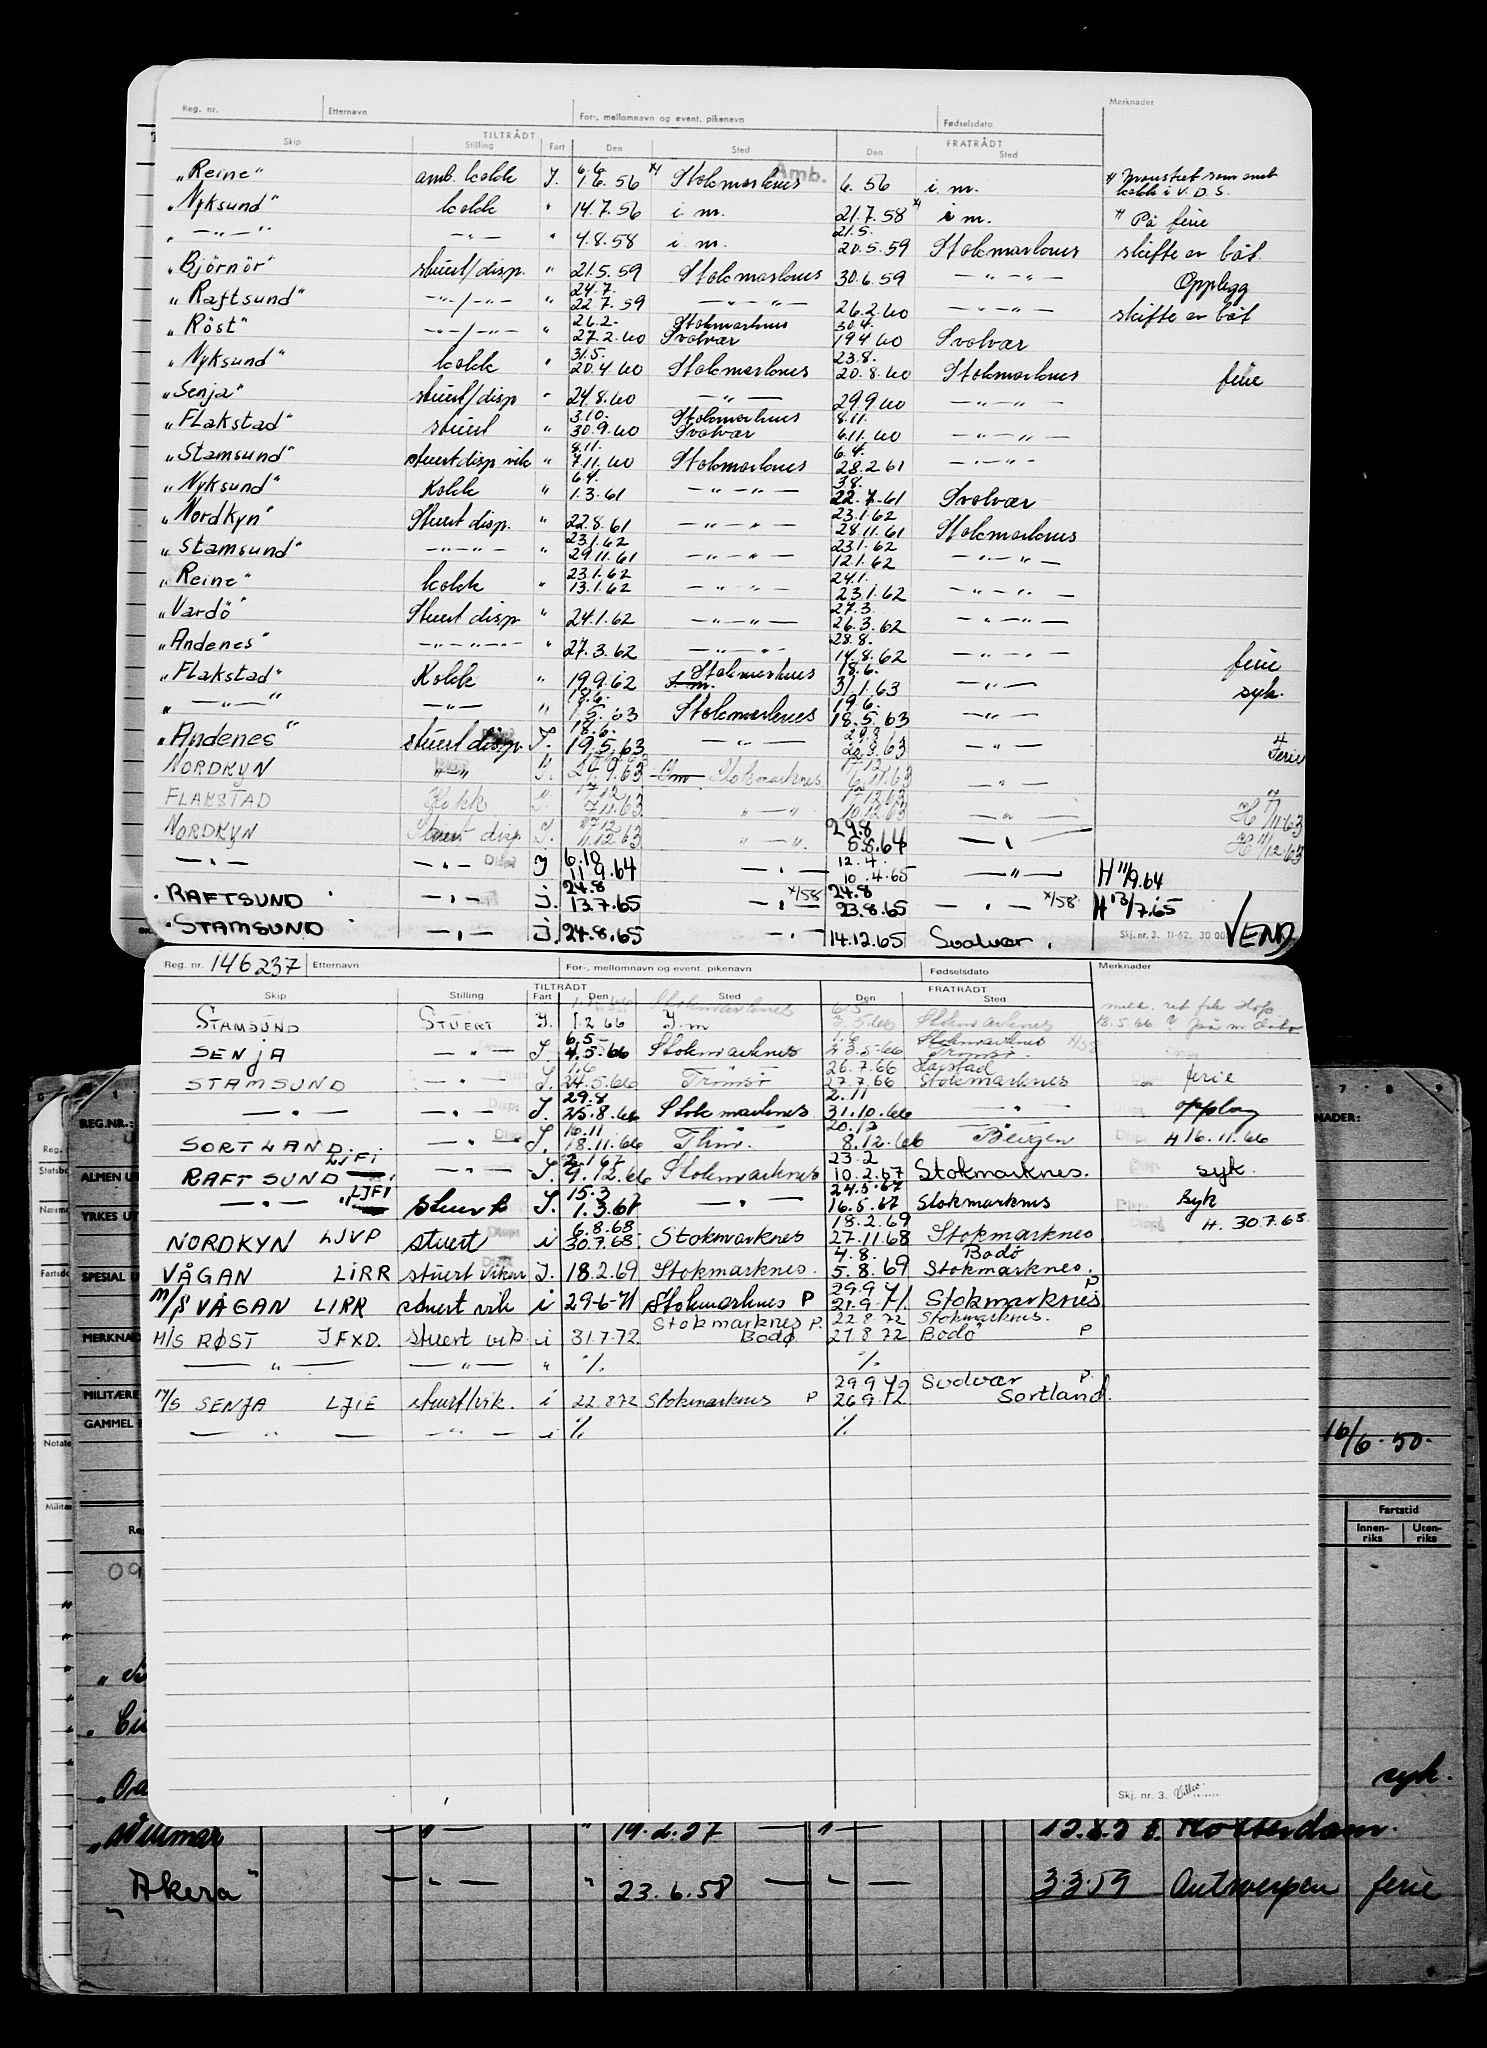 Reg. nr. Etternavn For-, mellomnavn og event. pikenavn Fødselsdato Merknader
TILTRÅDT FRATRÅDT
Skip Stilling Fart Den Sted Den Sted
Amb.
"Reine" amb. kokk J. 6.6. 1.6.56 x) Stokmarknes 6.56 i. m. x) Mønstret som amb. kokk i V.D.S.
"Nyksund" kokk " 14.7.56 i. m. 21.7.58 x) i m. x På ferie
" — " — " — " — " 4.8.58 i. m. 21.5. 20.5.59 Stokmarknes skifte av båt
"Björnör" stuert/disp. " 21.5.59 Stokmarknes 30.6.59 — " — " — Opplegg
"Raftsund" — " — / — " — " 24.7. 22.7.59 — " — " — 26.2.60 — " — " — skifte av båt
"Röst" — " — / — " — " 26.2. 27.2.60 Stokmarknes Svolvær 30.4. 19.4.60 Svolvær
"Nyksund" kokk " 31.5. 20.4.60 Stokmarknes 23.8. 20.8.60 Stokmarknes ferie
"Senja" stuert/disp " 24.8.60 — " — 29.9.60 — " — " —
"Flakstad" stuert " 3.10. 30.9.60 Stokmarknes Svolvær 8.11. 6.11.60 — " — " —
"Stamsund" stuert disp vik " 8.11. 7.11.60 Stokmarknes 6.4. 28.2.61 — " — " —
"Nyksund" Kokk " 6.4. 1.3.61 — " — " — 3.8. 22.7.61 Svolvær
"Nordkyn" Stuert disp. " 22.8.61 — " — " — 23.1.62 28.11.61 Stokmarknes
"Stamsund" — " — " — " 23.1.62 29.11.61 — " — " — 23.1.62 12.1.62 — " — " —
"Reine" kokk " 23.1.62 13.1.62 — " — " — 24.1. 23.1.62 — " — " —
"Vardö" Stuert disp " 24.1.62 — " — " — 27.3. 26.3.62 — " — " —
"Andenes" — " — " — " 27.3.62 — " — " — 28.8. 14.8.62 — " — " — ferie
"Flakstad" Kokk " 19.9.62 Stokmarknes 18.6. 31.1.63 — " — syk.
" — " — " — " — " 18.6. 1.5.63 Stokmarknes 19.6. 18.5.63 — " —
"Andenes" stuert disp. J. 18.6. 19.5.63 — " — 29.8. 20.8.63 — " — Ferie
NORDKYN " — " J. 9.63 Stokmarknes 17.12. 6.11.63 — " —
FLAKSTAD Kokk J. 17.12. 7.11.63 " — " 17.12.63 10.12.63 — " — H 7/11-63
NORDKYN Stuert disp J. 17.12. 11.12.63 " — " 29.8 5.8.64 — " — H 11/12-63
— " — — " — J 6.10 11.9.64 — " — 12.4. 10.4.65 — " — H 11/9.64
"RAFTSUND" — " — j. 24.8 13.7.65 — " — x/58 24.8 23.8.65 — " — x/58 H 13/7.65
"STAMSUND" — " — j. 24.8.65 — " — 14.12.65 Svolvær.
Skj. nr. 3. 11-62. 30 00 VEND
Reg. nr. 146237 Etternavn For-, mellomnavn og event. pikenavn Fødselsdato Merknader
TILTRÅDT FRATRÅDT
Skip Stilling Fart Den Sted Den Sted
STAMSUND STUERT J. 1.2.66 J.m 6.5 3.5.66 Stokmarknes 18.5.66
SENJA — " — J. 6.5- 4.5.66 Stokmarknes 1.6 23.5.66 Stokmarknes Tromsø. H58
STAMSUND — " — J. 1.6 24.5.66 Tromsø 26.7.66 27.7.66 Harstad Stokmarknes ferie
— " — — " — J. 29.8 25.8.66 Stokmarknes 2.11 31.10.66 — " — opplag
SORTLAND. — " — J. 16.11 18.11.66 Thm. 20.12 8.12.66 Bergen H 16.11.66
RAFTSUND LJFI — " — J. 2.1.67 9.12.66 Stokmarknes 23.2 10.2.67 Stokmarknes. syk
— " — "LJFI stuert J. 15.3 1.3.67 — " — 24.5.67 16.5.67 Stokmarknes syk
NORDKYN LJVP stuert i 6.8.68 30.7.68. Stokmarknes 18.2.69 27.11.68 Stokmarknes H. 30.7.68
VÅGAN LIRR stuert vikar J. 18.2.69 Stokmarknes. 4.8. 5.8.69 Bodø Stokmarknes.
M/S VÅGAN LIRR stuert vik i 29-6-71 Stokmarknes P 29.9 21.9.71. Stokmarknes P
H/S RØST JFXD. stuert vik. i 31.7.72 Stokmarknes P. Bodø 22.8.72 21.8.72 Stokmarknes. Bodø P
— " — — " — " % %
M/S SENJA LJIE stuert/vik. i 22.8.72 Stokmarknes P 29.9.72 26.9.72 Svolvær P. Sortland.
— " — — " — i % %
Skj. nr. 3.
REG.NR.:
ALMEN UT
YRKES UT
SPESIAL U
MERKNAD
MILITÆRE
GAMMEL
7 8 9
NADER:
16/6.50.
Fartstid
Innen-riks Uten-riks
09
Reg.
Statsbo
Nærme
Fartsdo
Notate
Militæ
syk.
— " — " 19.2.57 — " — Rotterdam.
"Akera" — " — " 23.6.58 — " — 3.3.59 Antwerpen ferie